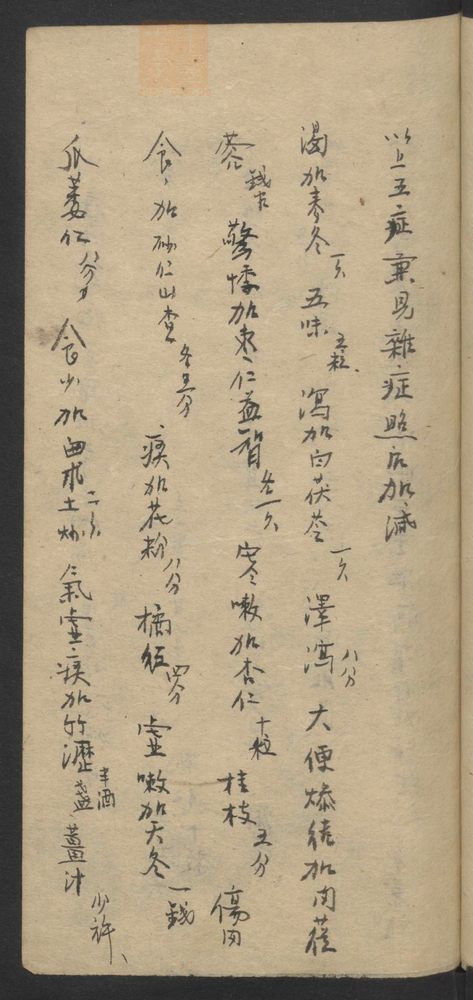 以上五症兼見雜症照后加减
渴加麦冬一不五味五粒瀉加白茯苓一不澤瀉八分大便燥結加肉蓯
蓉錢半驚悸加枣仁益智各一不寒嗽加杏仁十粒桂枝五分傷肉
食加砂仁山查各五分痰加花粉八分橘紅四分虛嗽加天冬一錢
瓜萎仁八分食少加白术土炒二不氣虛痰加竹瀝半酒盞薑汁少許